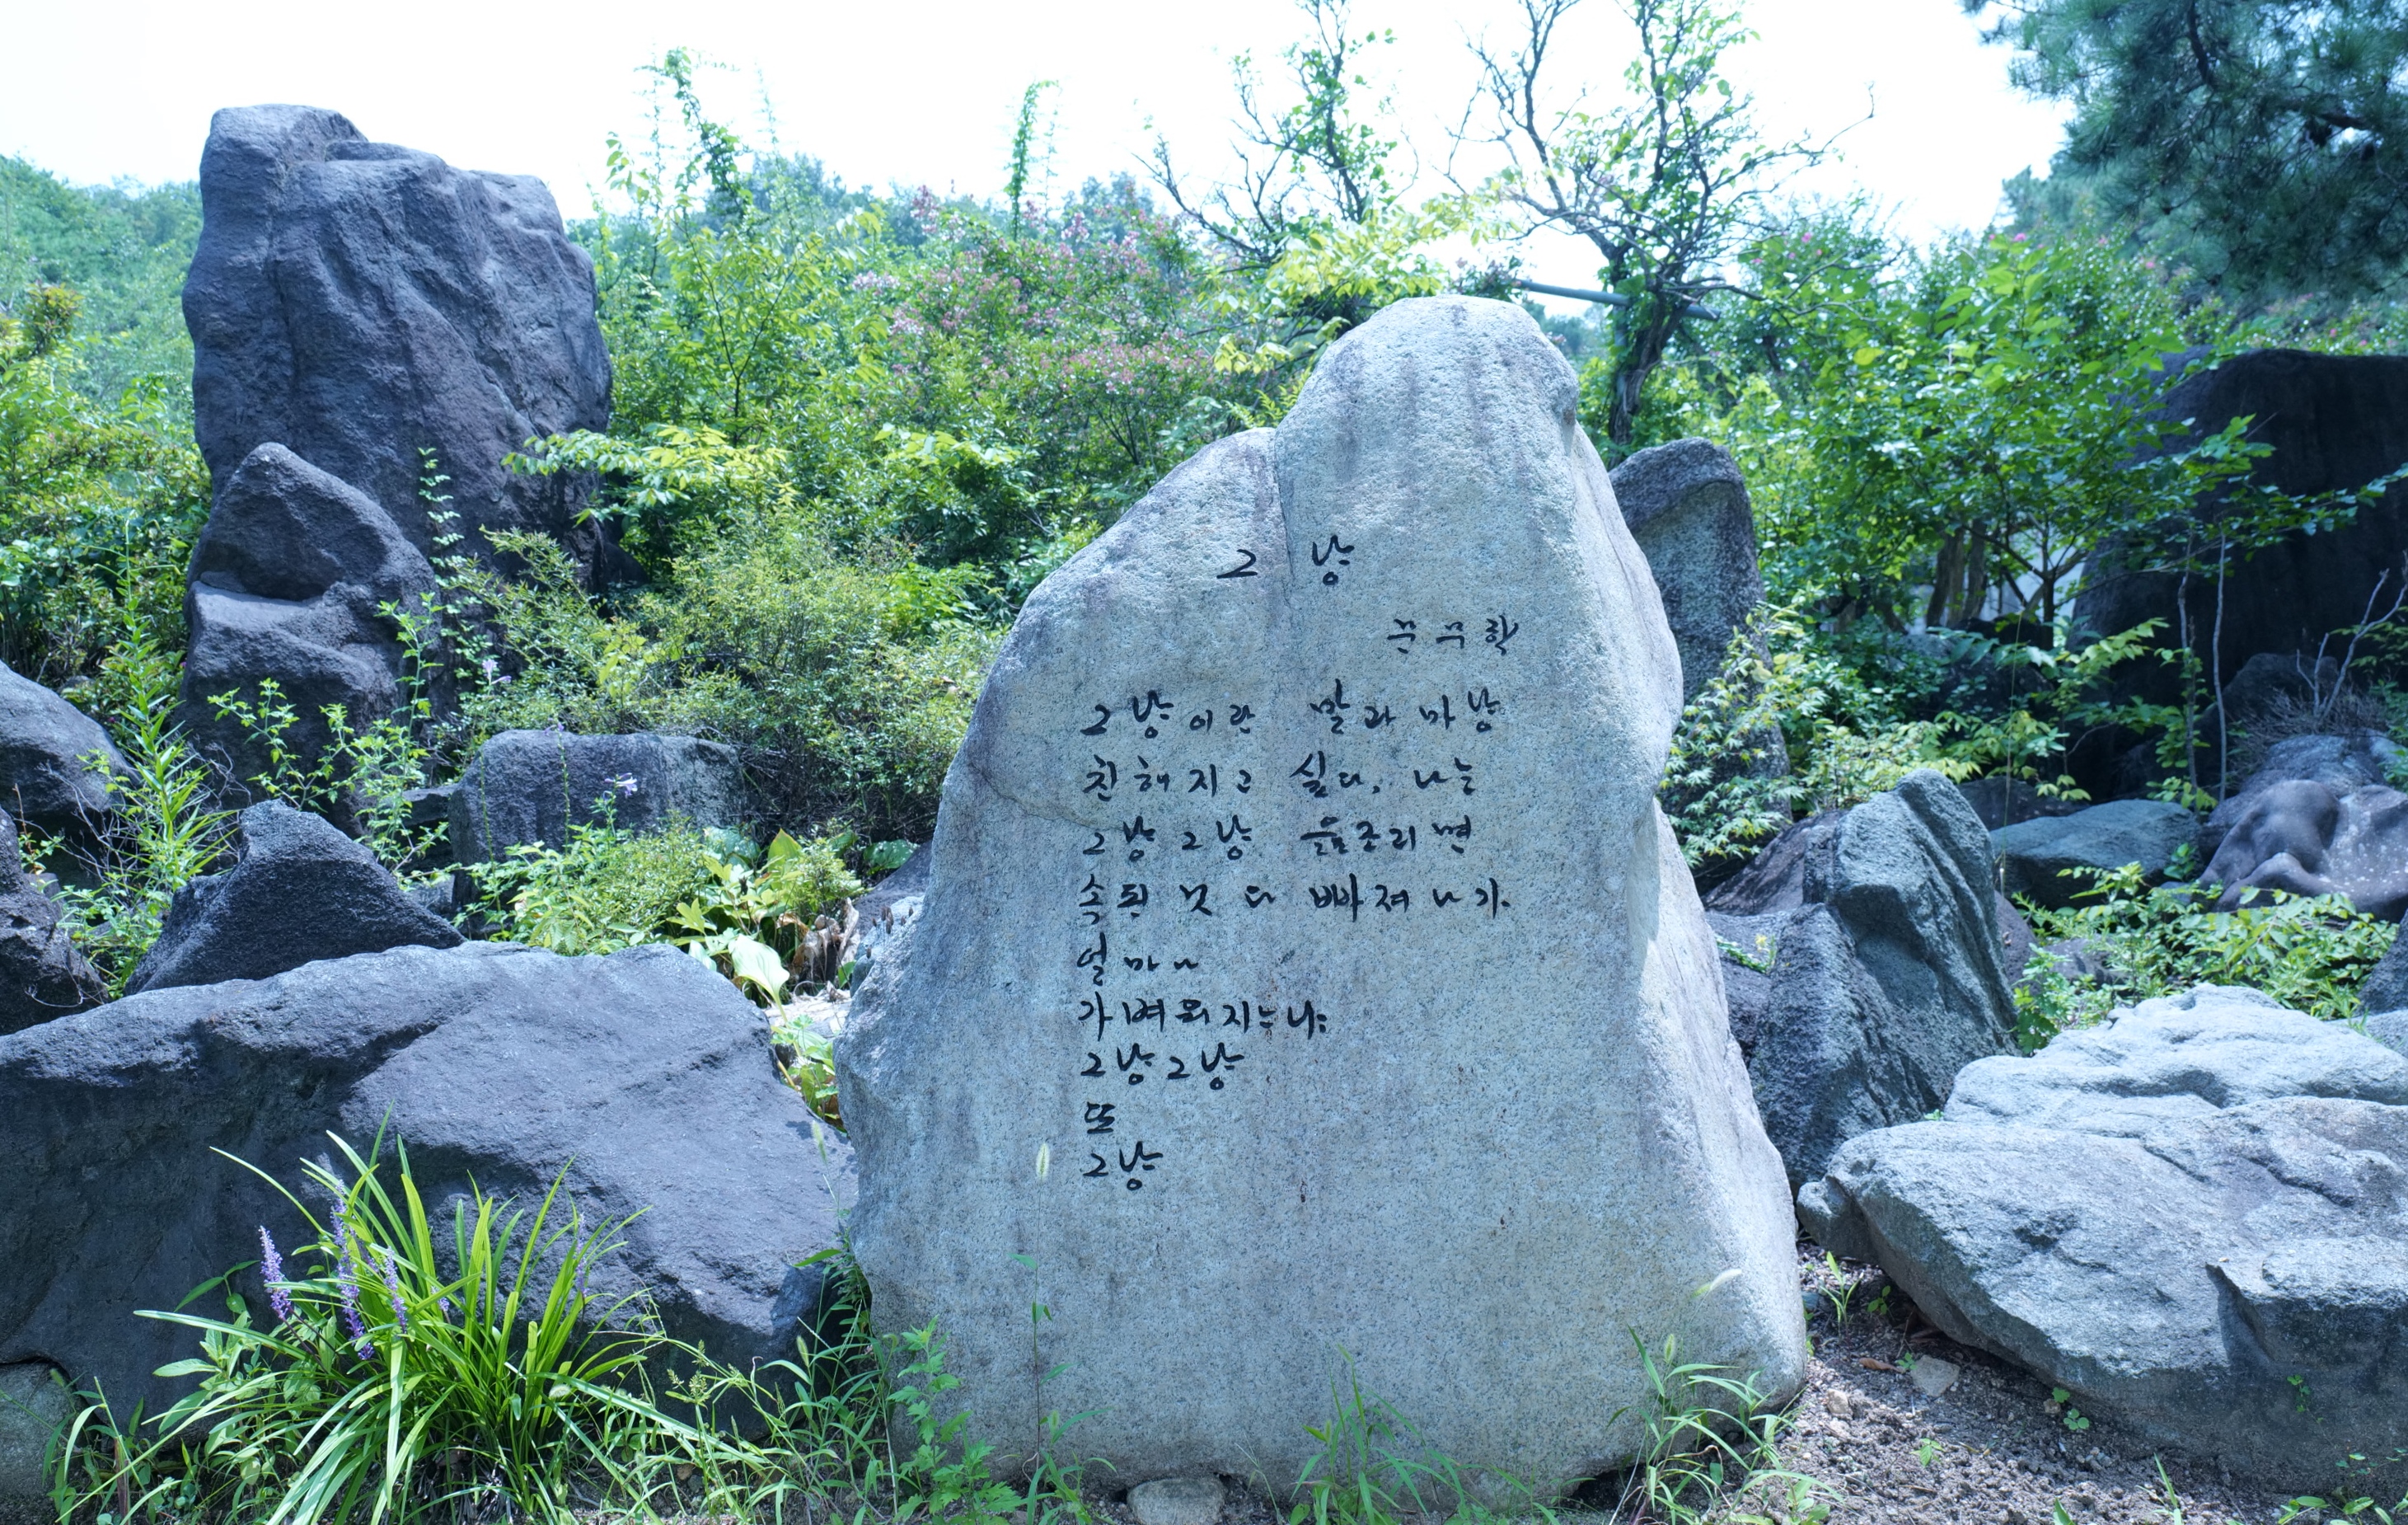 그냥
문무학
그냥이란 말과 마냥
친해지고 싶다, 나는
그냥그냥 읊조리면
속된 것 다 빠져나가
얼마나
가벼워지느냐
그냥그냥
또
그냥